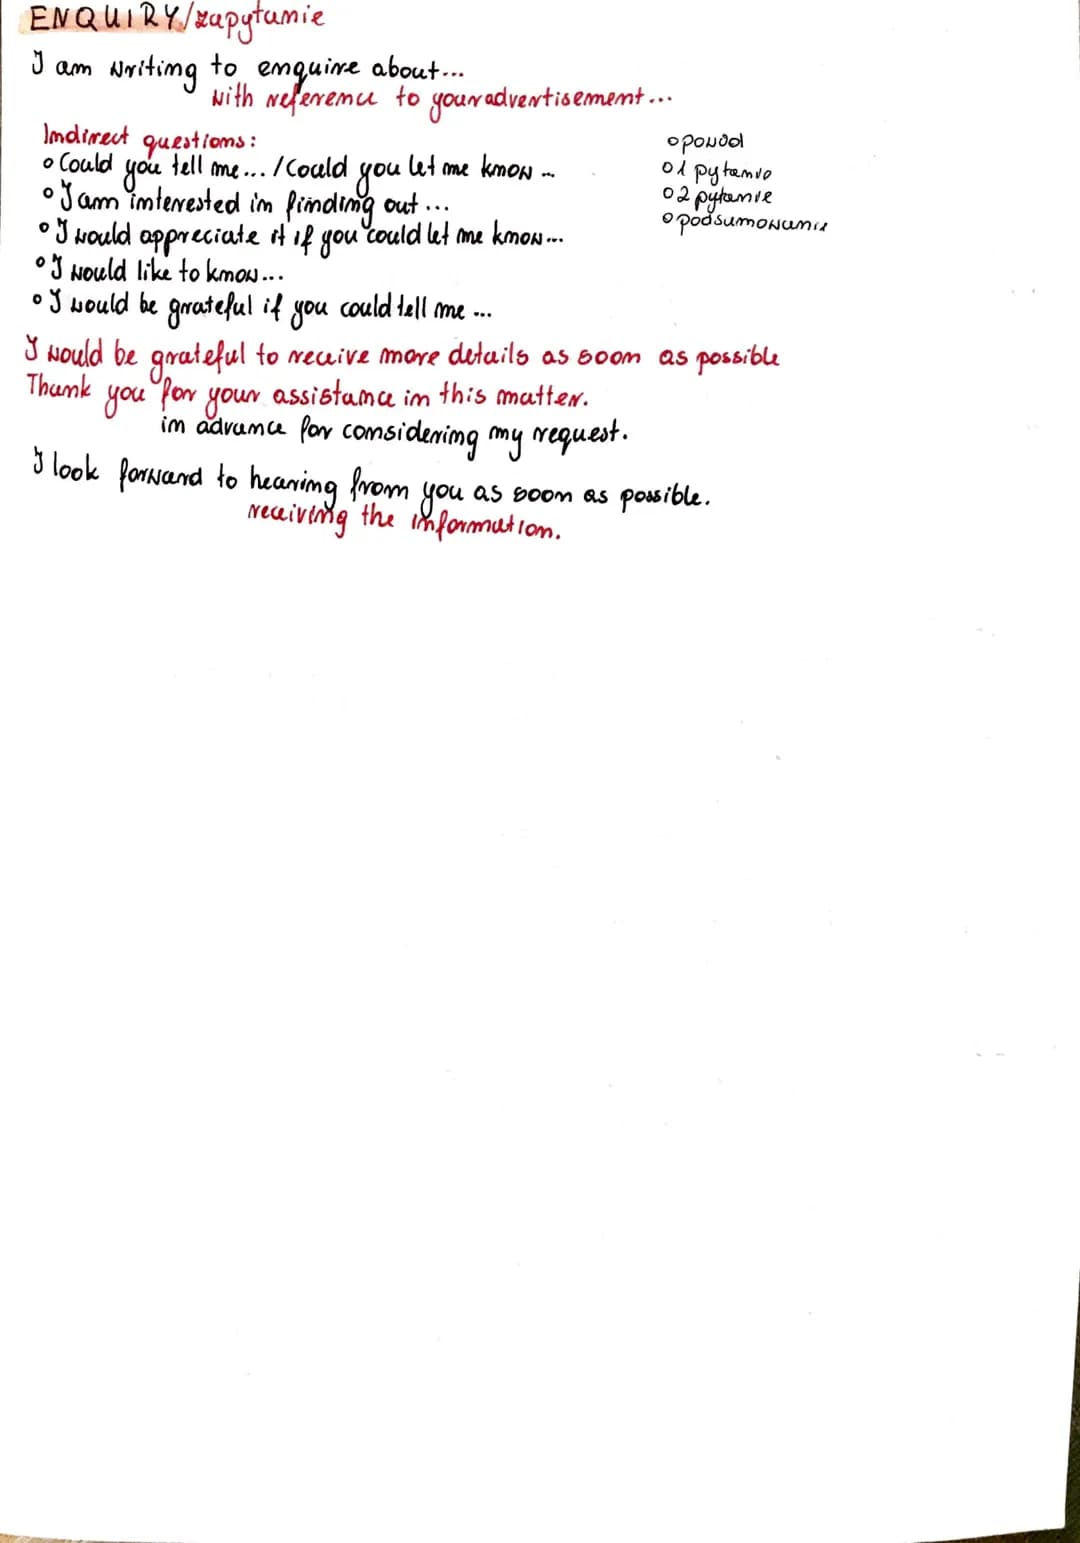 ENQUIRY/zapytanie
I am writing to enquire about...
with reference to your advertisement...
Indirect questions:
o Could you tell me... / Could you let me know...
o I am interested in finding out...
o I would appreciate it if you could let me know...
o I would like to know...
o I would be grateful if you could tell me...
o powód
o 1 pytanie
o 2 pytanie
o podsumowanie
I would be grateful to receive more details as soon as possible
Thank you for your assistance in this matter.
in advance for considering my request.
I look forward to hearing from you as soon as possible.
receiving the information.